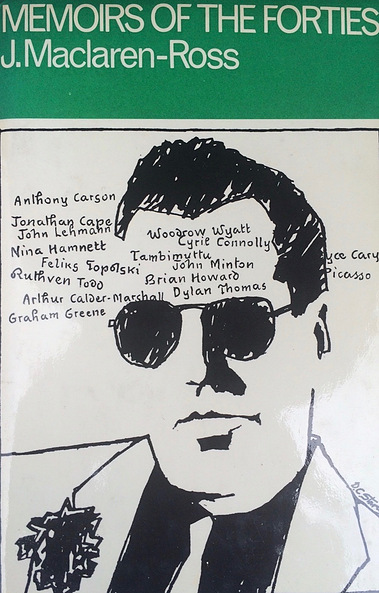 MEMOIRS OF THE FORTIES
J. Maclaren-Ross
Anthony Carson
Jonathan Cape
John Lehmann
Woodrow Wyatt
Cyril Connolly
Nina Hamnett
Tambimuttu
yce Cary
Feliks Topolski
John Minton
Picasso
Ruthven Todd
Brian Howard
Arthur Calder-Marshall
Dylan Thomas
Graham Greene